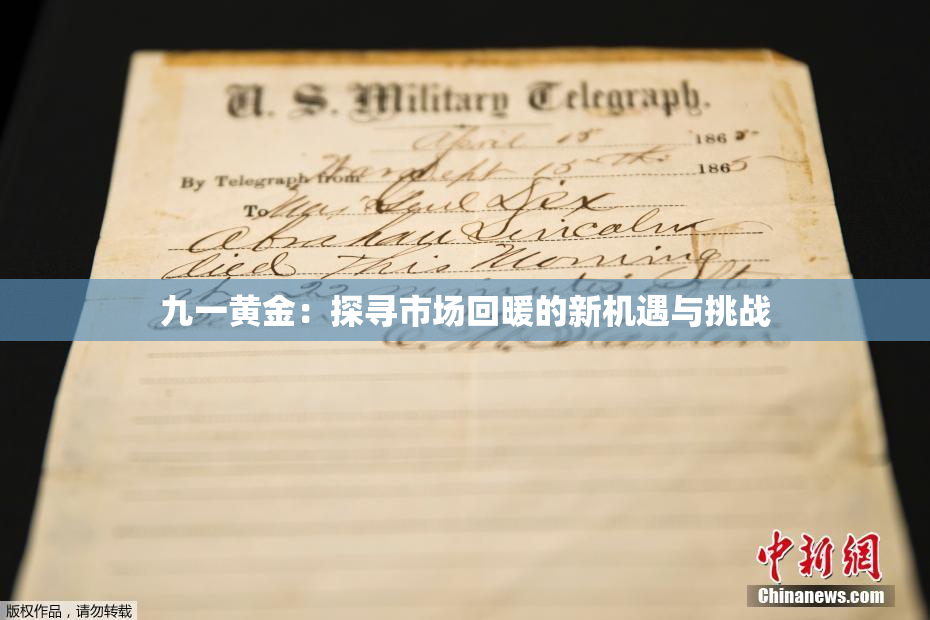 U. S. Military Telegraph.
April 15 1865-
By Telegraph from War Dept 15th 1865
To Maj Genl Dix
Abraham Lincoln
died This Morning
at 22 minutes after
九一黄金：探寻市场回暖的新机遇与挑战
E. M. Stanton
中新网
Chinanews.com
版权作品，请勿转载